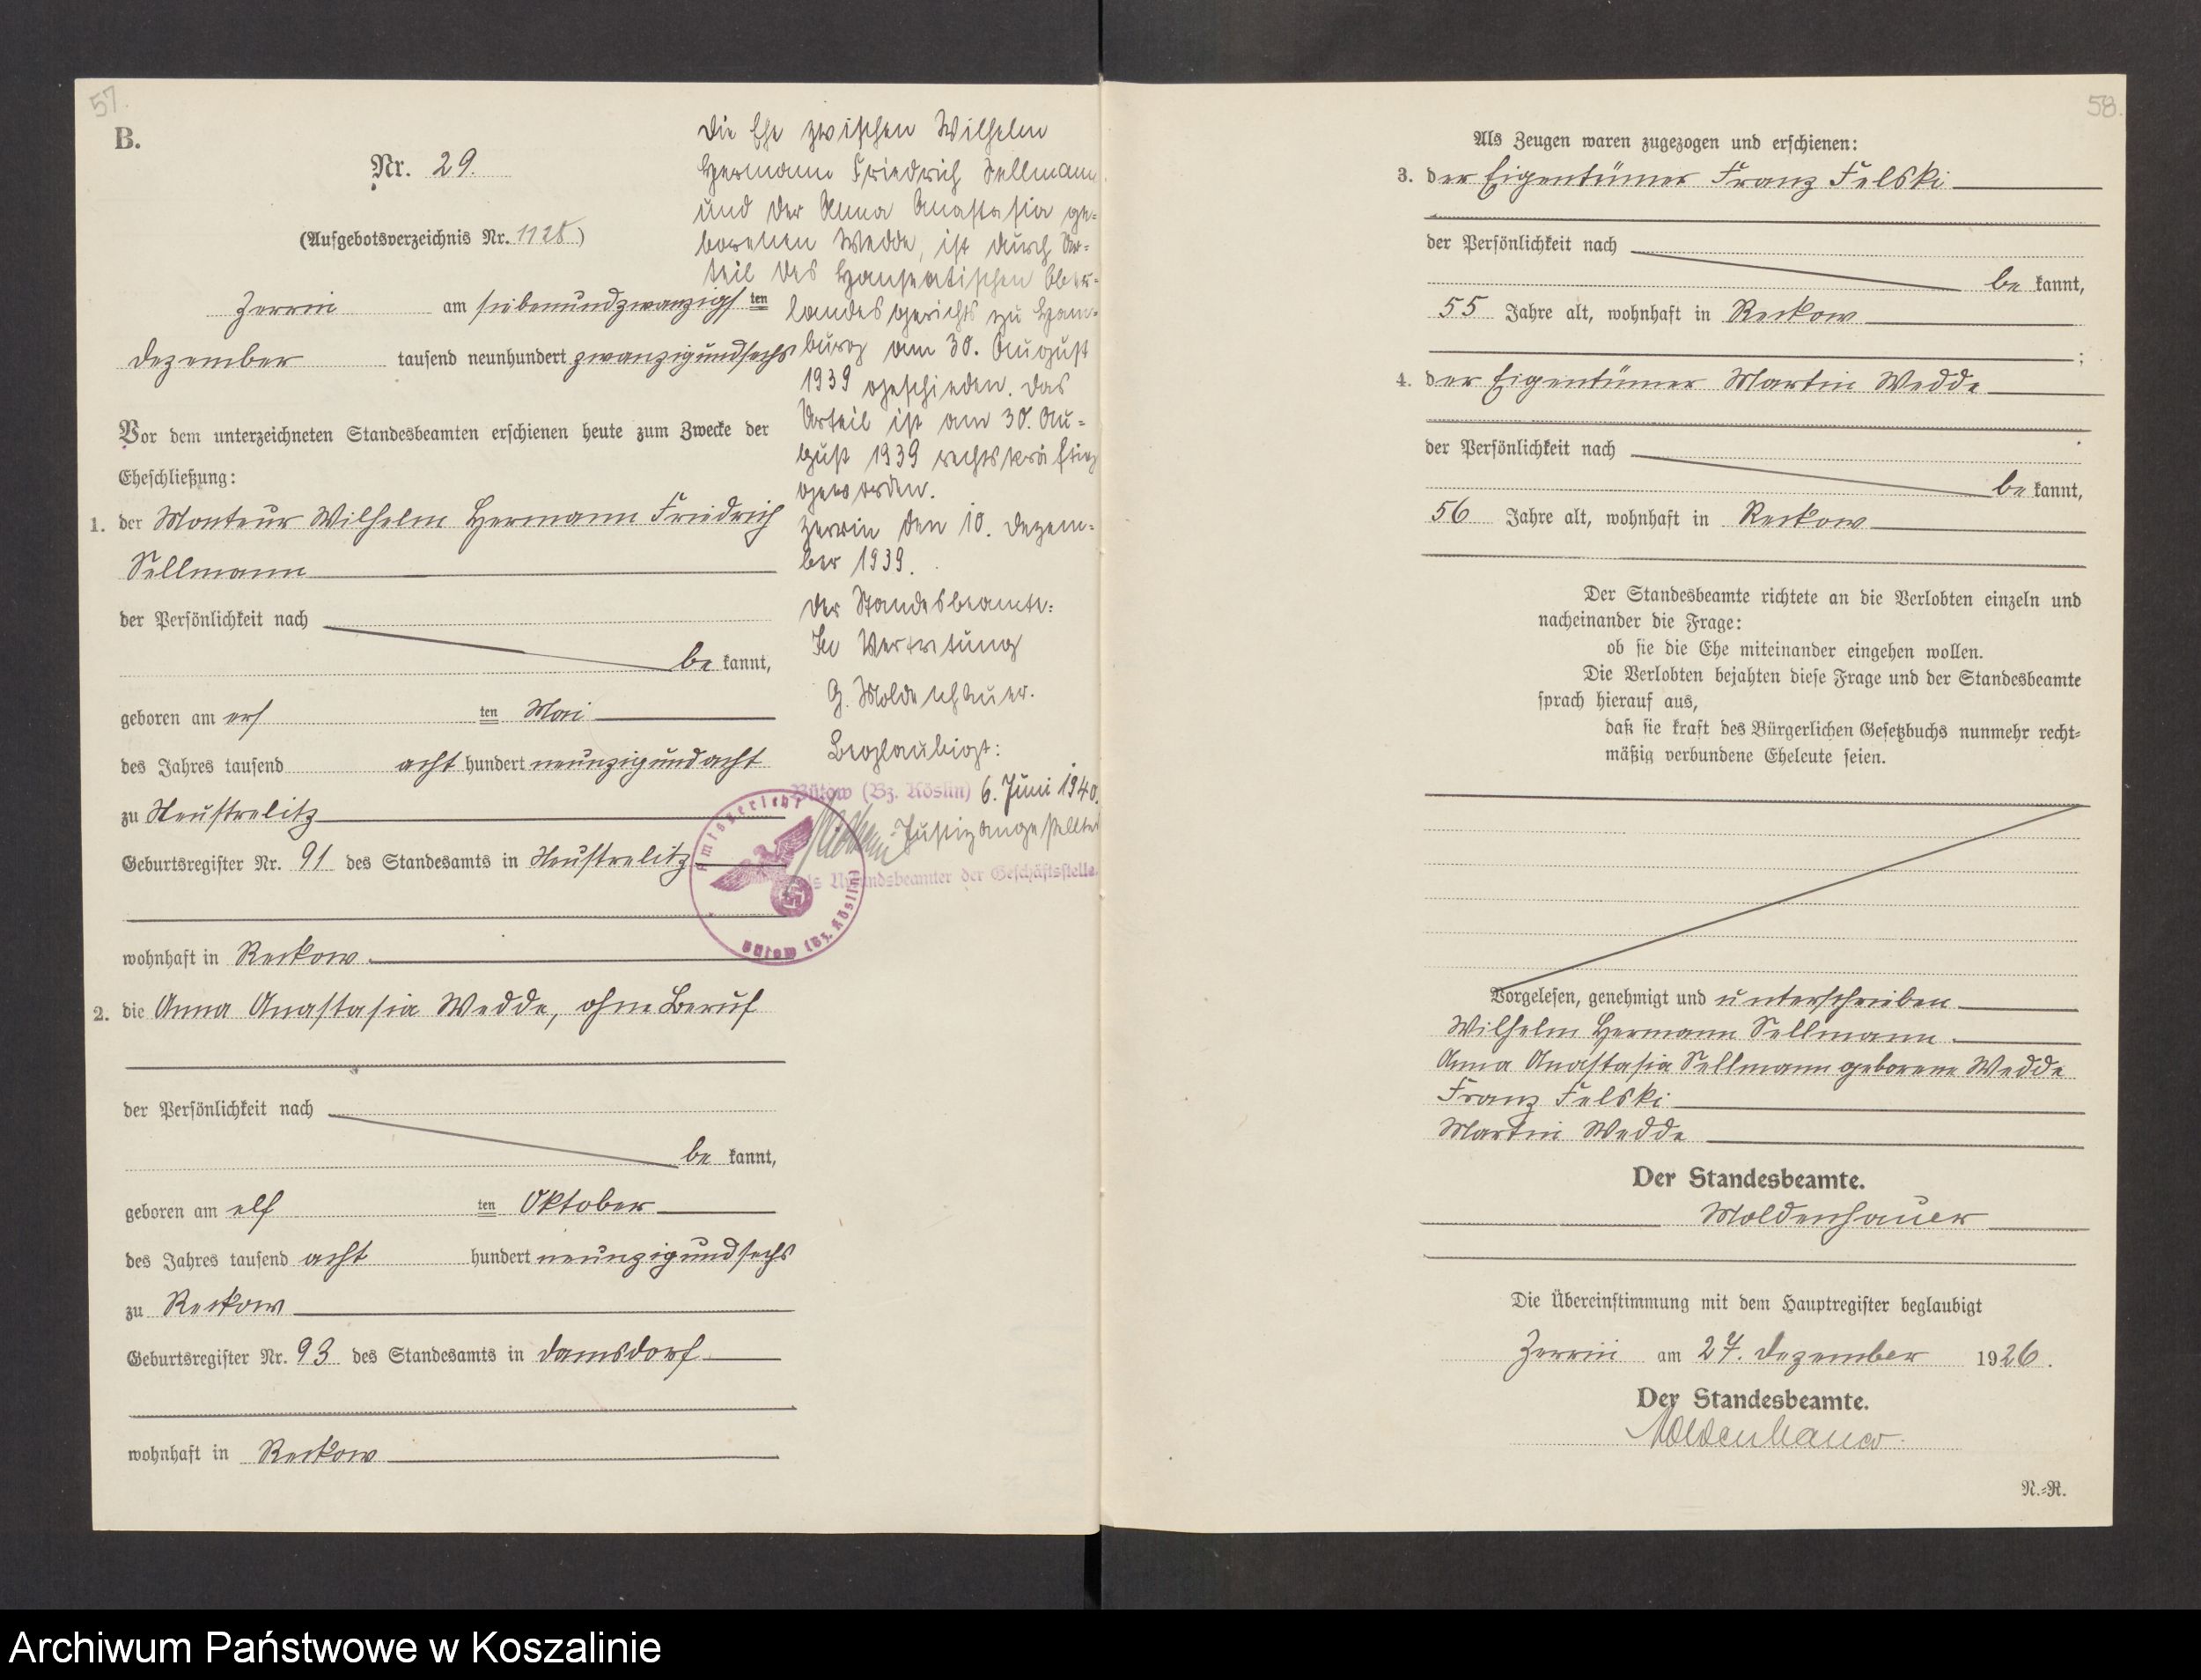 57.
B.
Nr. 29.
(Aufgebotsverzeichnis Nr. 1128)
Zerrin am siebenundzwanzigsten
Dezember tausend neunhundert zwanzigundsechs
Vor dem unterzeichneten Standesbeamten erschienen heute zum Zwecke der
Eheschließung:
1. der Monteur Wilhelm Hermann Friedrich
Sellmann
der Persönlichkeit nach
be kannt,
geboren am ersten Mai
des Jahres tausend acht hundert neunzigundacht
zu Neustrelitz
Geburtsregister Nr. 91 des Standesamts in Neustrelitz
wohnhaft in Reckow
2. die Anna Anastasia Wedde, ohne Beruf
der Persönlichkeit nach
be kannt,
geboren am elf ten Oktober
des Jahres tausend acht hundert neunzigundsechs
zu Reckow
Geburtsregister Nr. 93 des Standesamts in Damsdorf
wohnhaft in Reckow
Die Ehe zwischen Wilhelm
Hermann Friedrich Sellmann
und der Anna Anastasia ge-
borenen Wedde, ist durch Ur-
teil des Hanseatischen Ober-
landesgerichts zu Ham-
burg am 30. August
1939 geschieden. Das
Urteil ist am 30. Au-
gust 1939 rechtskräftig
geworden.
Zerrin den 10. Dezem-
ber 1939.
Der Standesbeamte:
In Vertretung
G. Moldenhauer.
Beglaubigt:
Bütow (Bz. Köslin) 6. Juni 1940.
Justizangestellter
als Urkundsbeamter der Geschäftsstelle.
Amtsgericht
Bütow (Bz. Köslin)
58.
Als Zeugen waren zugezogen und erschienen:
3. der Eigentümer Franz Felski
der Persönlichkeit nach
be kannt,
55 Jahre alt, wohnhaft in Reckow
;
4. der Eigentümer Martin Wedde
der Persönlichkeit nach
be kannt,
56 Jahre alt, wohnhaft in Reckow
Der Standesbeamte richtete an die Verlobten einzeln und
nacheinander die Frage:
ob sie die Ehe miteinander eingehen wollen.
Die Verlobten bejahten diese Frage und der Standesbeamte
sprach hierauf aus,
daß sie kraft des Bürgerlichen Gesetzbuchs nunmehr recht-
mäßig verbundene Eheleute seien.
Vorgelesen, genehmigt und unterschrieben
Wilhelm Hermann Sellmann.
Anna Anastasia Sellmann geborene Wedde
Franz Felski
Martin Wedde
Der Standesbeamte.
Moldenhauer
Die Übereinstimmung mit dem Hauptregister beglaubigt
Zerrin am 27. Dezember 1926.
Der Standesbeamte.
Moldenhauer.
N.-R.
Archiwum Państwowe w Koszalinie